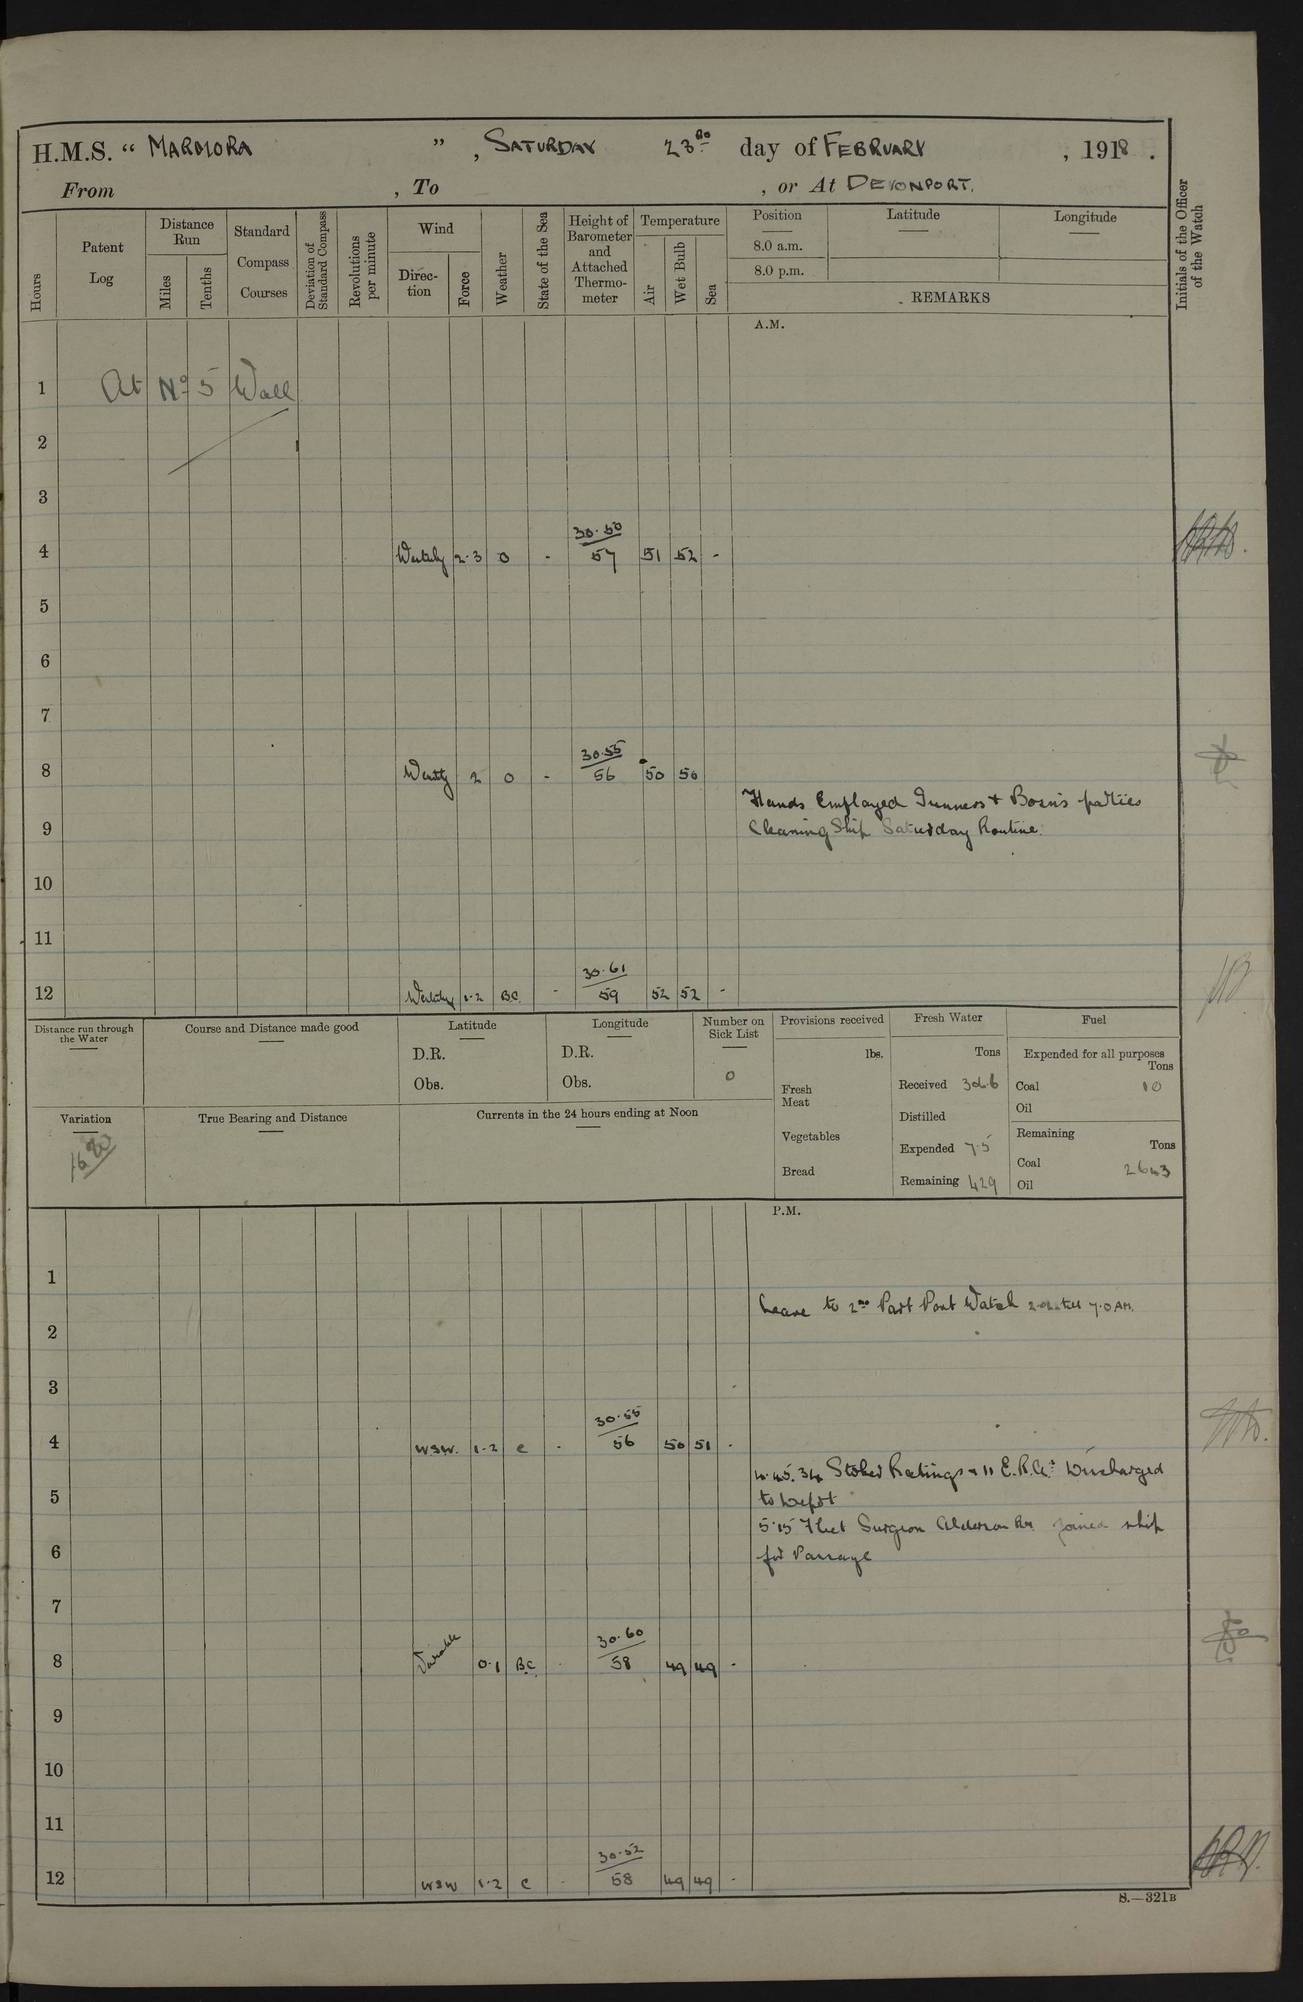 H.M.S. “ MARMORA ” , SATURDAY 23RD day of FEBRUARY , 1918 .
From , To , or At DEVONPORT.
Hours
Patent Log
Distance Run
Miles
Tenths
Standard Compass Courses
Deviation of Standard Compass
Revolutions per minute
Wind
Direc-tion
Force
Weather
State of the Sea
Height of Barometer and Attached Thermo-meter
Temperature
Air
Wet Bulb
Sea
Position
8.0 a.m.
8.0 p.m.
Latitude
Longitude
REMARKS
Initials of the Officer of the Watch
A.M.
1 At No 5 Wall
2
3
4 Westerly 2-3 O - 30.50 57 51 52 -
5
6
7
8 Westly 2 O - 30.55 56 50 50
Hands Employed Gunners & Bosn's parties
9 Cleaning Ship Saturday Routine.
10
11
12 Westerly 1-2 BC - 30.61 59 52 52 -
Distance run through the Water
Course and Distance made good
Latitude
D.R.
Obs.
Longitude
D.R.
Obs.
Number on Sick List
0
Provisions received
lbs.
Fresh Meat
Vegetables
Bread
Fresh Water
Tons
Received 306
Distilled
Expended 75
Remaining 429
Fuel
Expended for all purposes
Tons
Coal 10
Oil
Remaining
Tons
Coal 2643
Oil
Variation
True Bearing and Distance
Currents in the 24 hours ending at Noon
P.M.
1
Leave to 2nd Part Port Watch till 7.0 AM.
2
3
4 WSW. 1-2 C - 30.55 56 50 51 -
4.45. 34 Stoker Ratings & 11 E.R.A.s Discharged
5 to Depôt
5.15 Fleet Surgeon Alderson RN joined ship
6 for Passage
7
8 Variable 0-1 BC - 30.60 58 49 49 -
9
10
11
12 WSW 1-2 C - 30.52 58 49 49 -
S.—321B